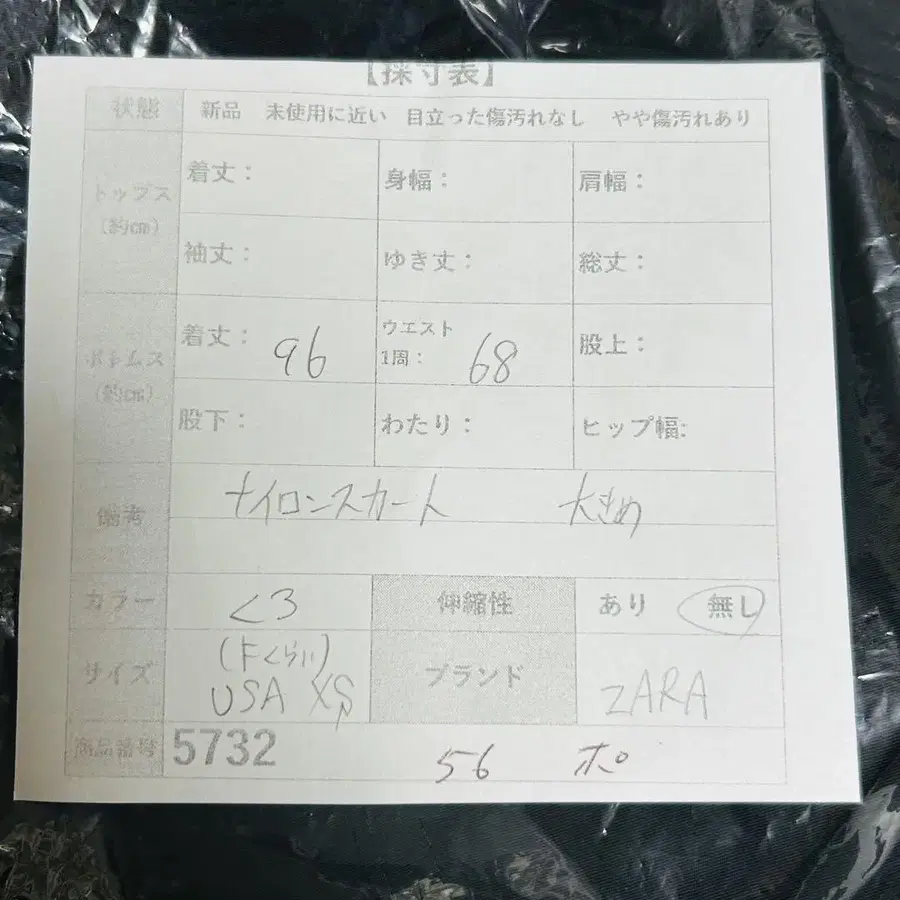 【採寸表】
状態 新品 未使用に近い 目立った傷汚れなし やや傷汚れあり
トップス(約cm) 着丈: 身幅: 肩幅:
袖丈: ゆき丈: 総丈:
ボトムス(約cm) 着丈: 96 ウエスト1周: 68 股上:
股下: わたり: ヒップ幅:
備考 ナイロンスカート 大きめ
カラー くろ 伸縮性 あり 無し
サイズ USA XS ブランド ZARA
商品番号 5732 56 ポ